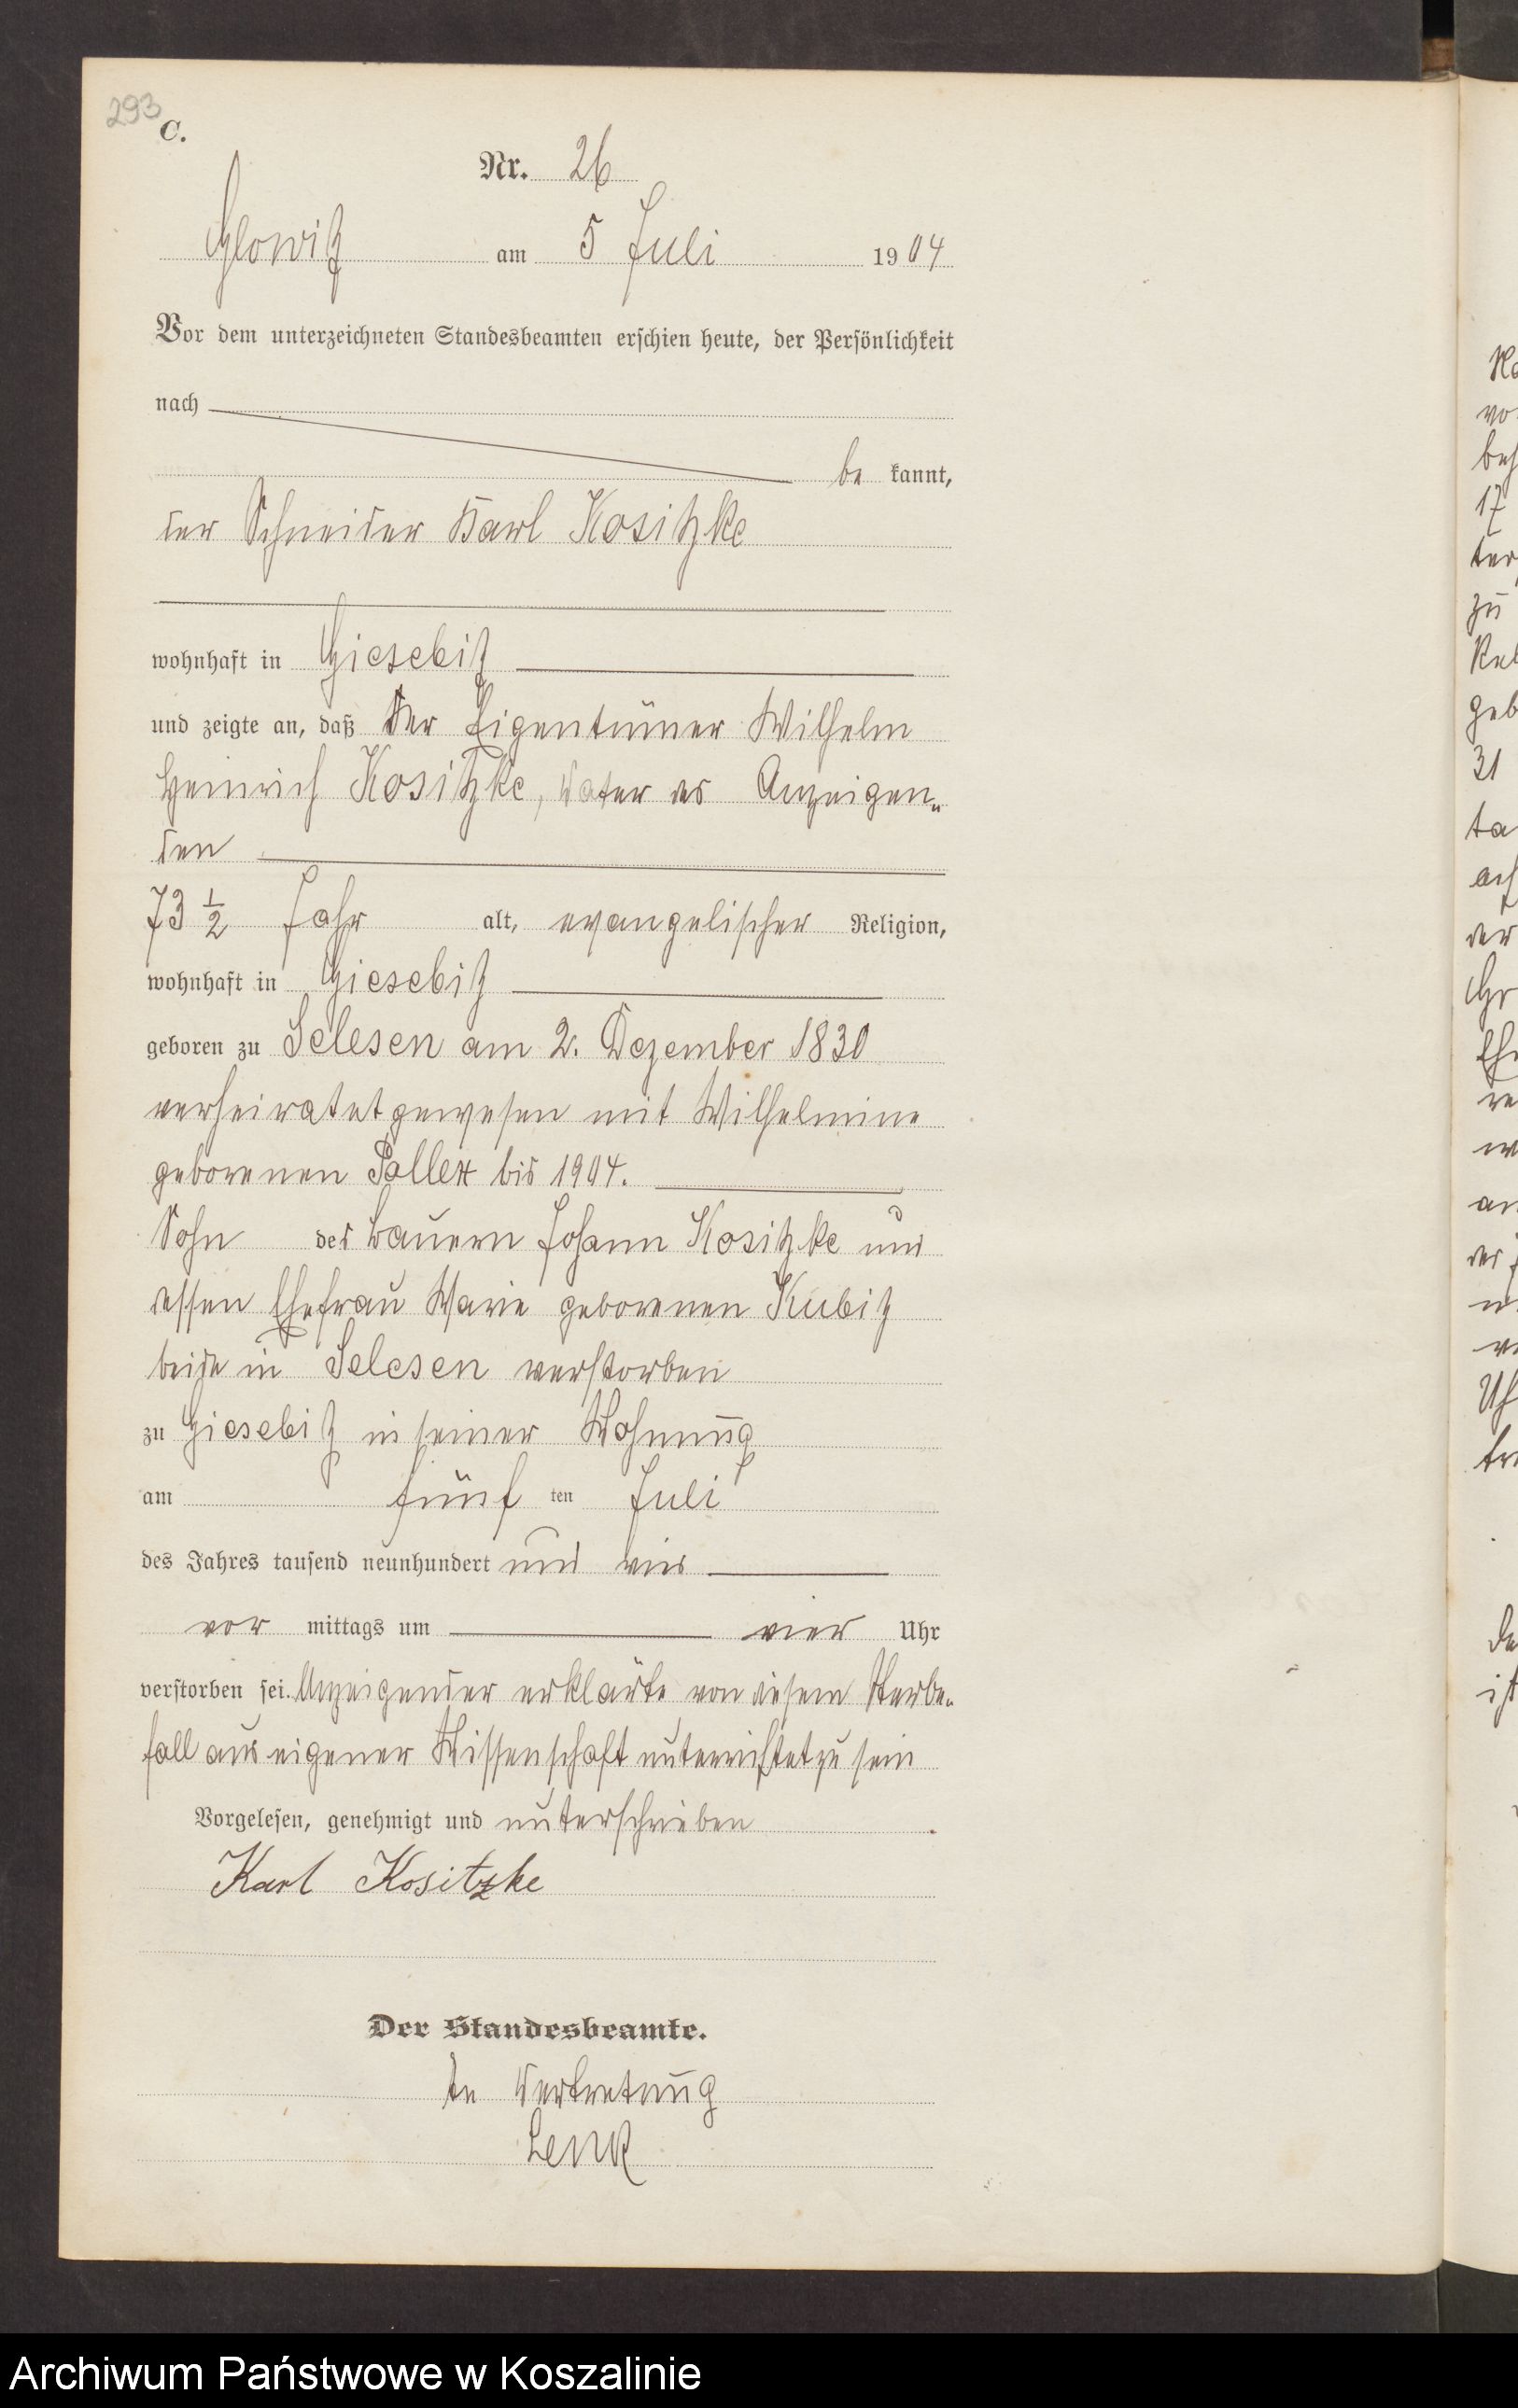 293
C.
Nr. 26
Glowitz am 5 Juli 1904
Vor dem unterzeichneten Standesbeamten erschien heute, der Persönlichkeit
nach
be kannt,
der Schneider Karl Kositzke
wohnhaft in Giesebitz
und zeigte an, daß der Eigentümer Wilhelm
Heinrich Kositzke, Vater des Anzeigen„
den
73 1/2 Jahr alt, evangelischer Religion,
wohnhaft in Giesebitz
geboren zu Selesen am 2. Dezember 1830
verheiratet gewesen mit Wilhelmine
geborenen bis 1904.
Sohn des Bauern Johann Kositzke und
dessen Ehefrau Marie geborenen Kubitz
beide in Selesen verstorben
zu Giesebitz in seiner Wohnung
am fünf ten Juli
des Jahres tausend neunhundert und vier
vor mittags um vier Uhr
verstorben sei. Anzeigender erklärte von diesem Sterbe„
fall aus eigener Wissenschaft unterrichtet zu sein
Vorgelesen, genehmigt und unterschrieben.
Karl Kositzke
Der Standesbeamte.
In Vertretung
Lenk
Archiwum Państwowe w Koszalinie